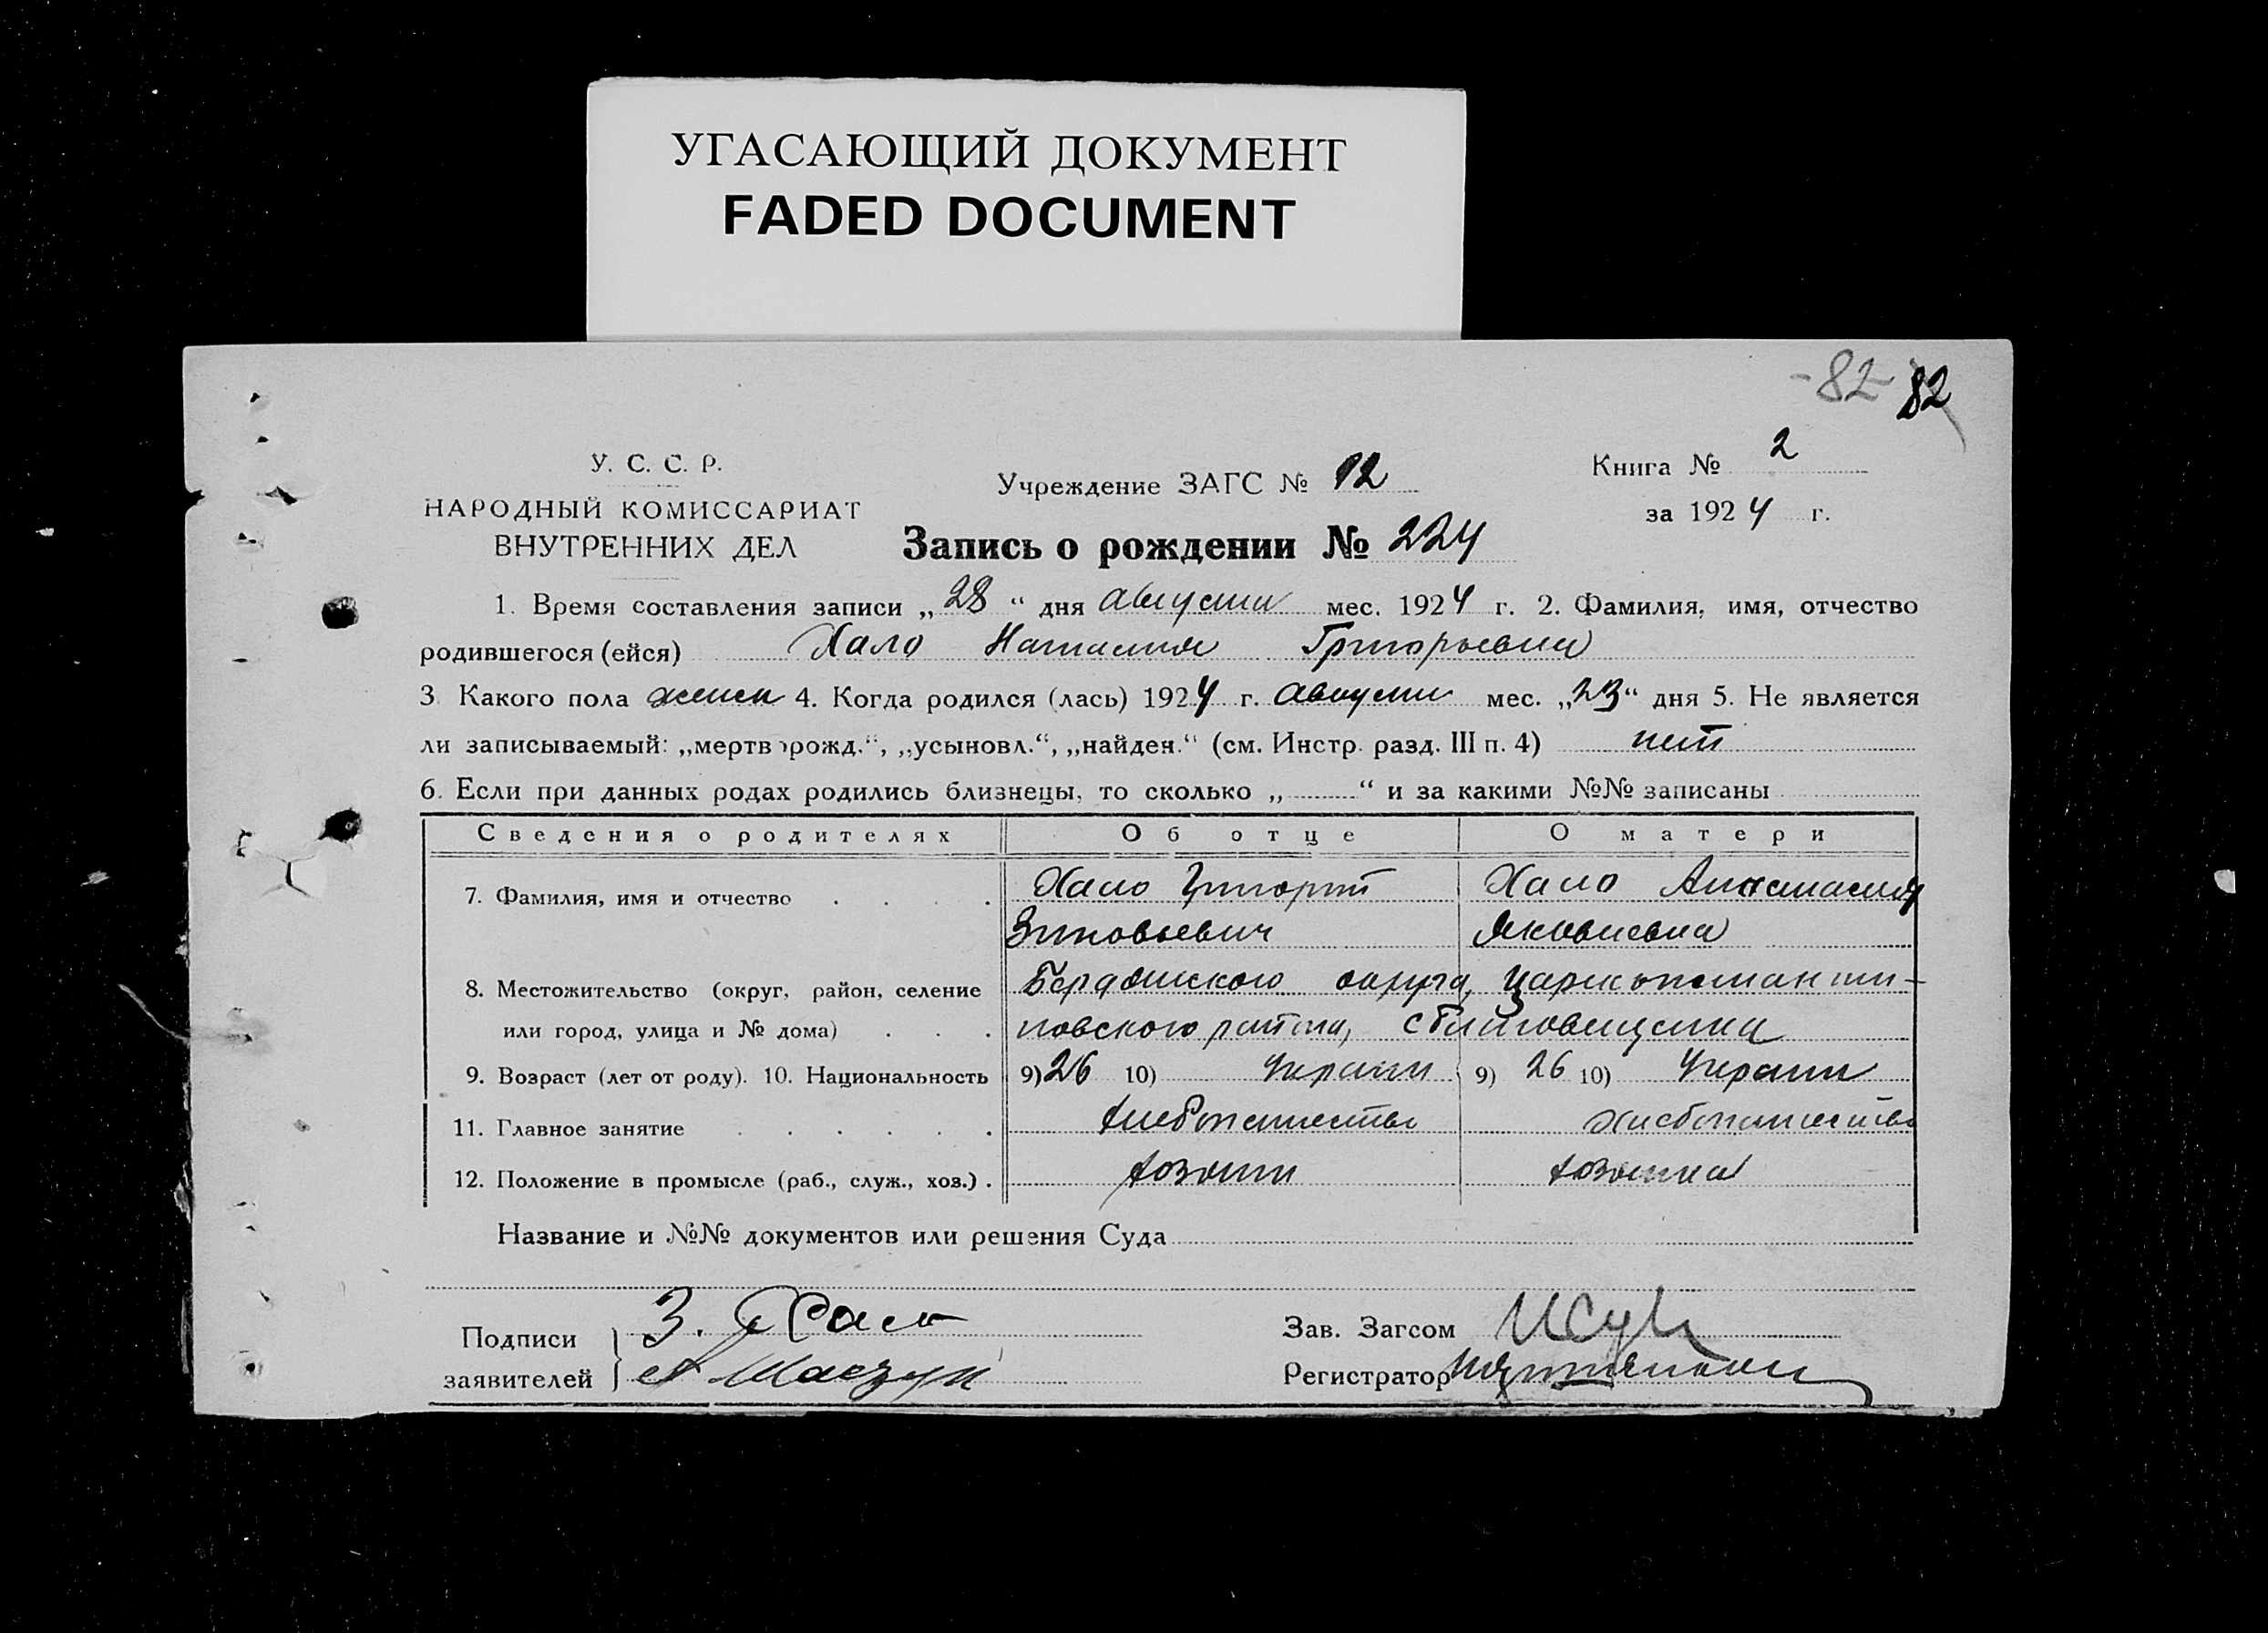 УГАСАЮЩИЙ ДОКУМЕНТ
FADED DOCUMENT
-82- 82
У. С. С. Р.
НАРОДНЫЙ КОМИССАРИАТ
ВНУТРЕННИХ ДЕЛ
Учреждение ЗАГС № 12
Книга № 2
за 1924 г.
Запись о рождении № 224
1. Время составления записи „28“ дня августа мес. 1924 г. 2. Фамилия, имя, отчество
родившегося (ейся) Хало Наталия Григорьевна
3. Какого пола женск 4. Когда родился (лась) 1924 г. август мес. „23“ дня 5. Не является
ли записываемый: „мертворожд.“, „усыновл.“, „найден.“ (см. Инстр. разд. III п. 4) нет
6. Если при данных родах родились близнецы, то сколько „ “ и за какими №№ записаны
Сведения о родителях Об отце О матери
7. Фамилия, имя и отчество Хало Григорий Хало Анастасия
Зиновьевич Яковлевна
8. Местожительство (округ, район, селение Бердянского округа, Цареконстанти-
или город, улица и № дома) новского района, с Благовещенка
9. Возраст (лет от роду). 10. Национальность 9) 26 10) Украин 9) 26 10) Украин
11. Главное занятие хлебопашество хлебопашество
12. Положение в промысле (раб., служ., хоз.) хозяин хозяйка
Название и №№ документов или решения Суда
Подписи З. Г Хало
заявителей А
Зав. Загсом
Регистратор